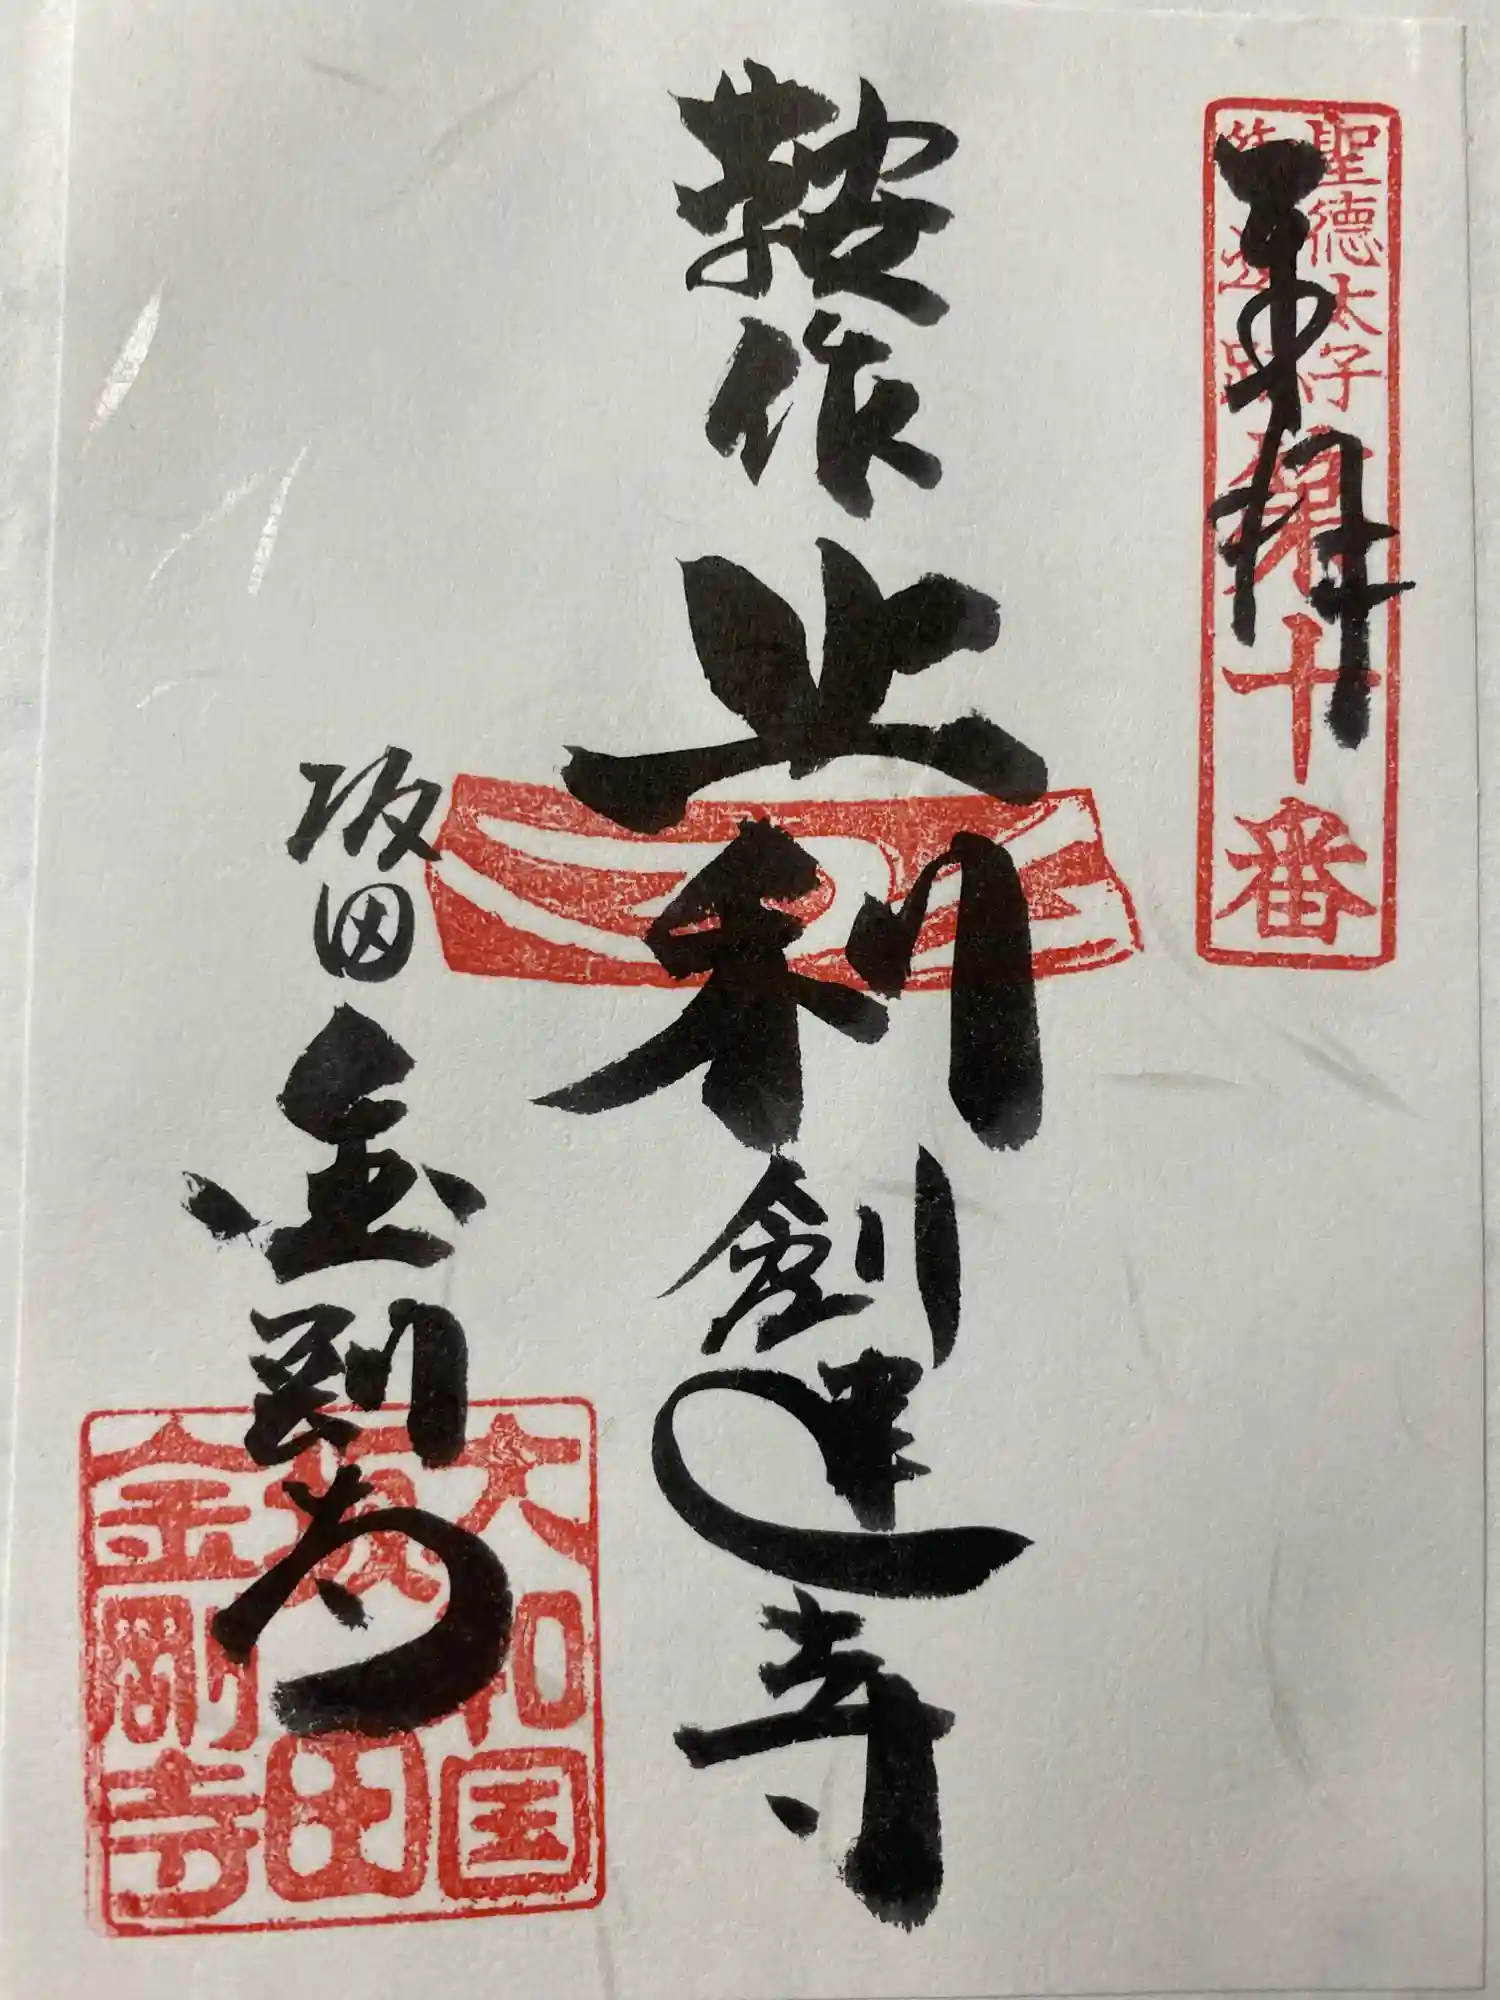 奉拝
聖徳太子
御遺跡
第十番
鞍作止利創建寺
坂田金剛寺
大和国
坂田
金剛寺